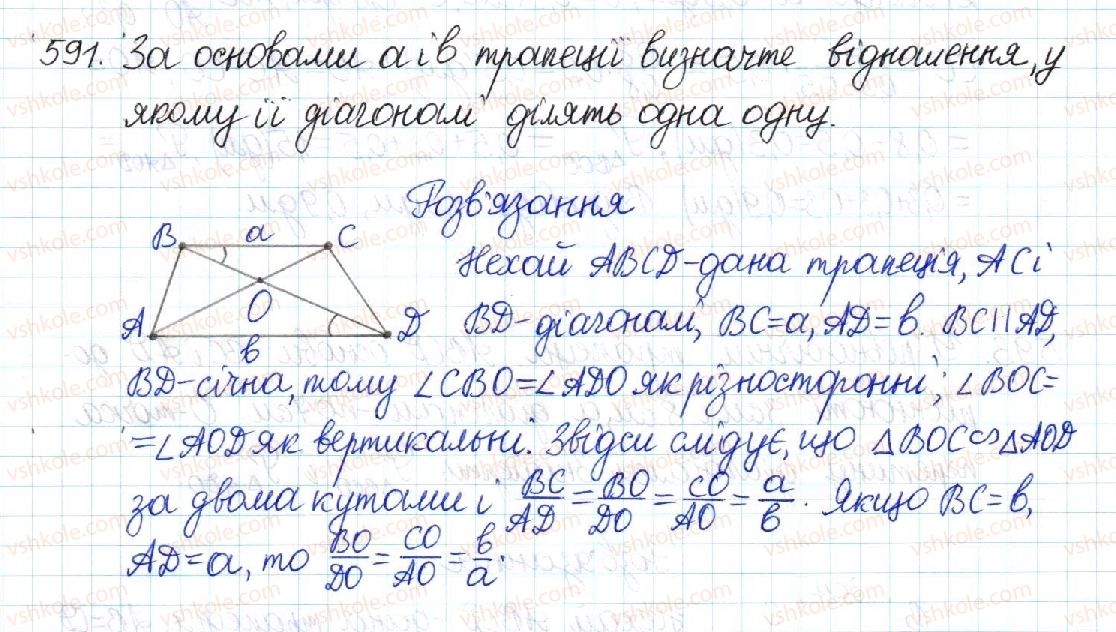 591. За основами a і b трапеції визначте відношення, у
якому її діагоналі ділять одна одну.
Розв'язання
B a C
Нехай ABCD - дана трапеція, AC і
O
A D
b
BD - діагоналі, BC = a, AD = b. BC || AD,
BD - січна, тому ∠CBO = ∠ADO як різносторонні; ∠BOC =
= ∠AOD як вертикальні. Звідси слідує, що △BOC ∽ △AOD
за двома кутами і BC/AD = BO/DO = CO/AO = a/b. Якщо BC = b,
AD = a, то BO/DO = CO/AO = b/a.